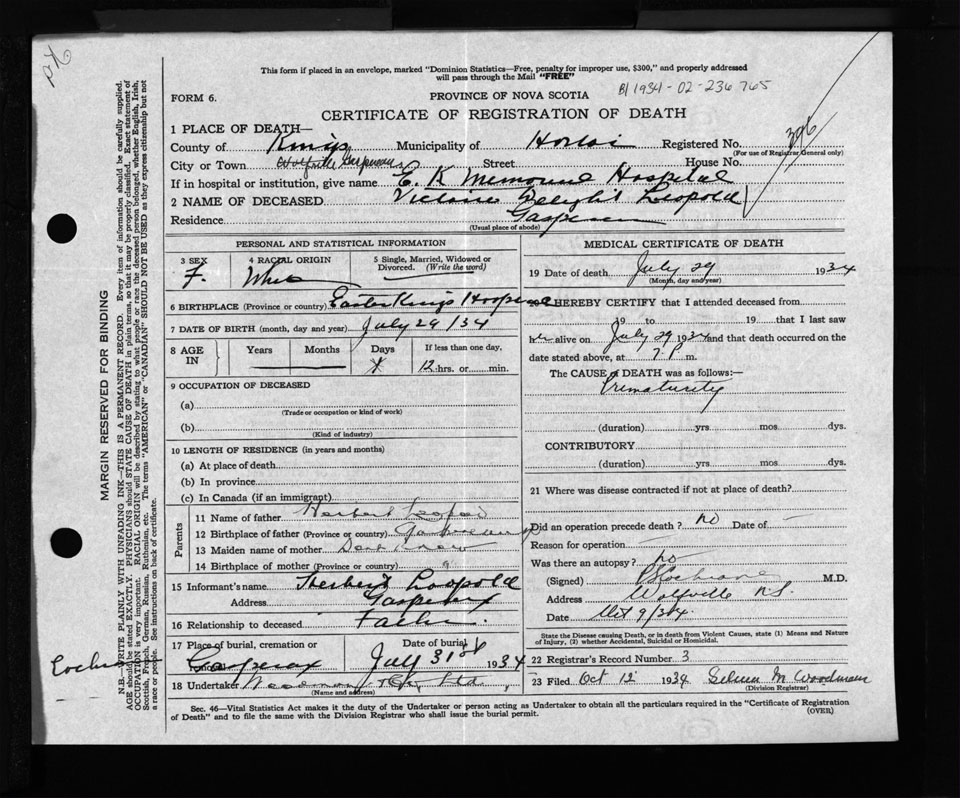 This form if placed in an envelope, marked "Dominion Statistics—Free, penalty for improper use, $300," and properly addressed
will pass through the Mail "FREE"
B/1934-02-236765
FORM 6.
PROVINCE OF NOVA SCOTIA
CERTIFICATE OF REGISTRATION OF DEATH
396
1 PLACE OF DEATH—
County of Kings Municipality of Horton Registered No.
(For use of Registrar General only)
City or Town Wolfville Gaspereau Street House No.
If in hospital or institution, give name E. K Memorial Hospital
2 NAME OF DECEASED Victoria Delight Leopold
Residence Gaspereau
(Usual place of abode)
PERSONAL AND STATISTICAL INFORMATION
3 SEX 4 RACIAL ORIGIN 5 Single, Married, Widowed or Divorced. (Write the word)
F. White
6 BIRTHPLACE (Province or country) Eastern Kings Hospital
7 DATE OF BIRTH (month, day and year) July 29/34
8 AGE IN Years Months Days If less than one day,
12 hrs. or min.
9 OCCUPATION OF DECEASED
(a)
(Trade or occupation or kind of work)
(b)
(Kind of industry)
10 LENGTH OF RESIDENCE (in years and months)
(a) At place of death
(b) In province
(c) In Canada (if an immigrant)
Parents
11 Name of father Herbert Leopold
12 Birthplace of father (Province or country) Gaspereau
13 Maiden name of mother Dont know
14 Birthplace of mother (Province or country)
15 Informant's name Herbert Leopold
Address Gaspereau
16 Relationship to deceased Father
17 Place of burial, cremation or Date of burial
Gaspereau July 31st 1934
18 Undertaker
(Name and address)
MEDICAL CERTIFICATE OF DEATH
19 Date of death July 29 1934
(Month, day and year)
20 I HEREBY CERTIFY that I attended deceased from
19 to 19 that I last saw
her alive on July 29 1934 and that death occurred on the
date stated above, at 7 P. m.
The CAUSE of DEATH was as follows:—
Prematurity
(duration) yrs mos dys.
CONTRIBUTORY
(duration) yrs. mos. dys.
21 Where was disease contracted if not at place of death?
Did an operation precede death? no Date of —
Reason for operation —
Was there an autopsy? no
(Signed) Cochrane M.D.
Address Wolfville N.S.
Date Oct 9/34
State the Disease causing Death, or in death from Violent Causes, state (1) Means and Nature
of Injury, (2) whether Accidental, Suicidal or Homicidal.
22 Registrar's Record Number 3
23 Filed Oct 12 1934 M Woodman
(Division Registrar)
Sec. 46—Vital Statistics Act makes it the duty of the Undertaker or person acting as Undertaker to obtain all the particulars required in the "Certificate of Registration
of Death" and to file the same with the Division Registrar who shall issue the burial permit. (OVER)
MARGIN RESERVED FOR BINDING
N.B.—WRITE PLAINLY WITH UNFADING INK—THIS IS A PERMANENT RECORD. Every item of information should be carefully supplied.
AGE should be stated EXACTLY. PHYSICIANS should STATE CAUSE OF DEATH in plain terms, so that it may be properly classified. Exact statement of
OCCUPATION is very important. RACIAL ORIGIN will be described by stating to what people or race the deceased person belonged, whether English, Irish,
Scottish, French, German, Russian, Ruthenian, etc. The terms "AMERICAN" or "CANADIAN" SHOULD NOT BE USED as they express citizenship but not
a race or people. See instructions on back of certificate.